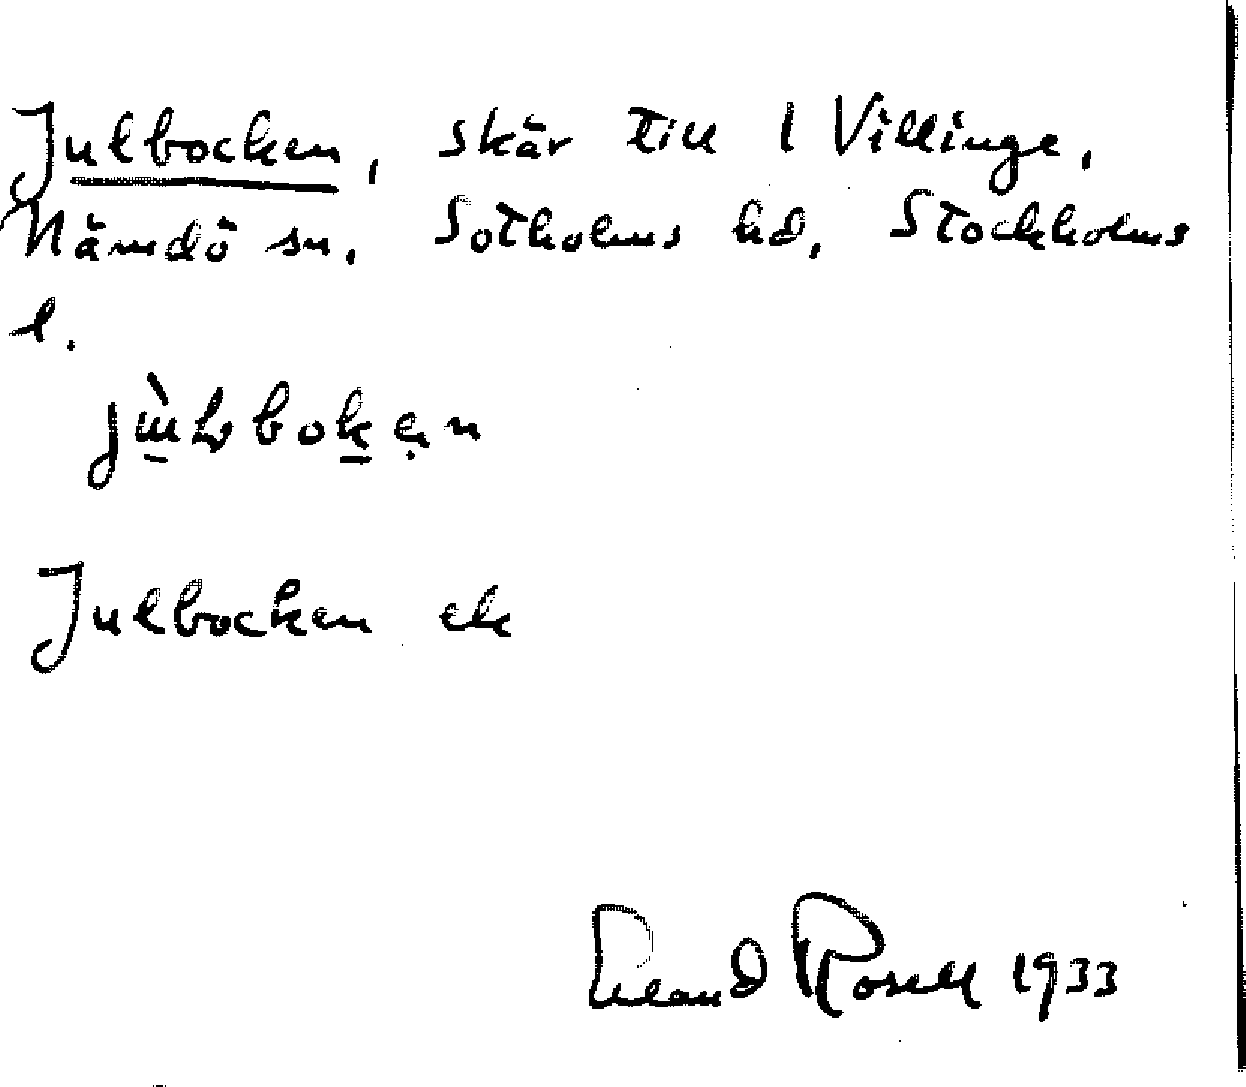 Julbocken, skär till 1 Villinge,
Nämdö sn, Sotholms hd, Stockholms
l.
jùlboken
Julbocken ek
Erland Rosell 1933